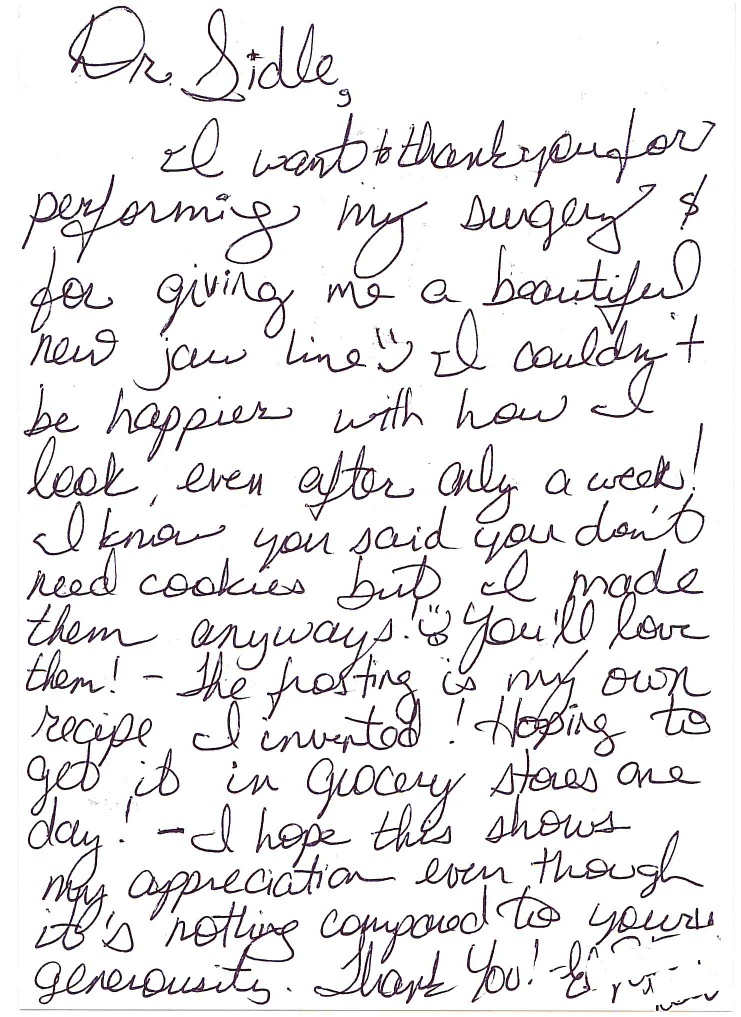 Dr. Sidle,
I want to thank you for
performing my surgery &
for giving me a beautiful
new jaw line :) I couldn't
be happier with how I
look, even after only a week!
I know you said you don't
need cookies but I made
them anyways! :) You'll love
them! - The frosting is my own
recipe I invented! Hoping to
get it in grocery stores one
day! - I hope this shows
my appreciation even though
it's nothing compared to yours
generousity. Thank You! -